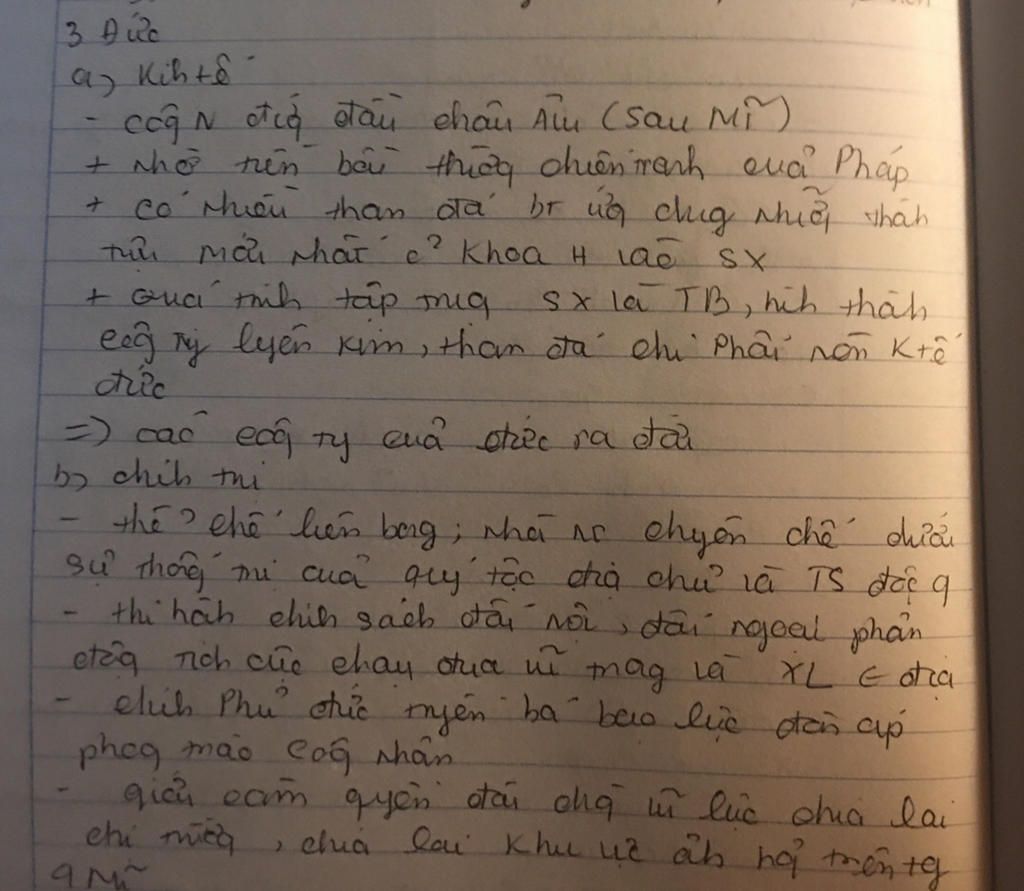 3 Đức
a) Kih tế
- côg N đứg đầu châu Âu (sau Mĩ)
+ nhờ tiền bồi thườg chiến tranh của Pháp
+ có nhiều than đá bt ứg dụg nhữg thàh
tựu mới nhất c² khoa H vào SX
+ Quá trìh tập trug SX và TB, hìh thàh
côg ty luyện kim, than đá chi phối nền K tế
đức
=> các côg ty của đức ra đời
b) chíh trị
- thể chế liên bag; nhà nc chuyên chế dưới
sự thốg trị của quý tộc địa chủ và TS độc q
- thi hàh chíh sách đối nội, đối ngoại phản
độg tích cực chạy đua vũ trag và XL ∈ địa
- chíh Phủ đức truyên bá bạo lực đàn áp
phog trào côg nhân
- giới cầm quyền đức dùg vũ lực chia lại
thị trườg, chia lại khu vực ảh hg trên tg